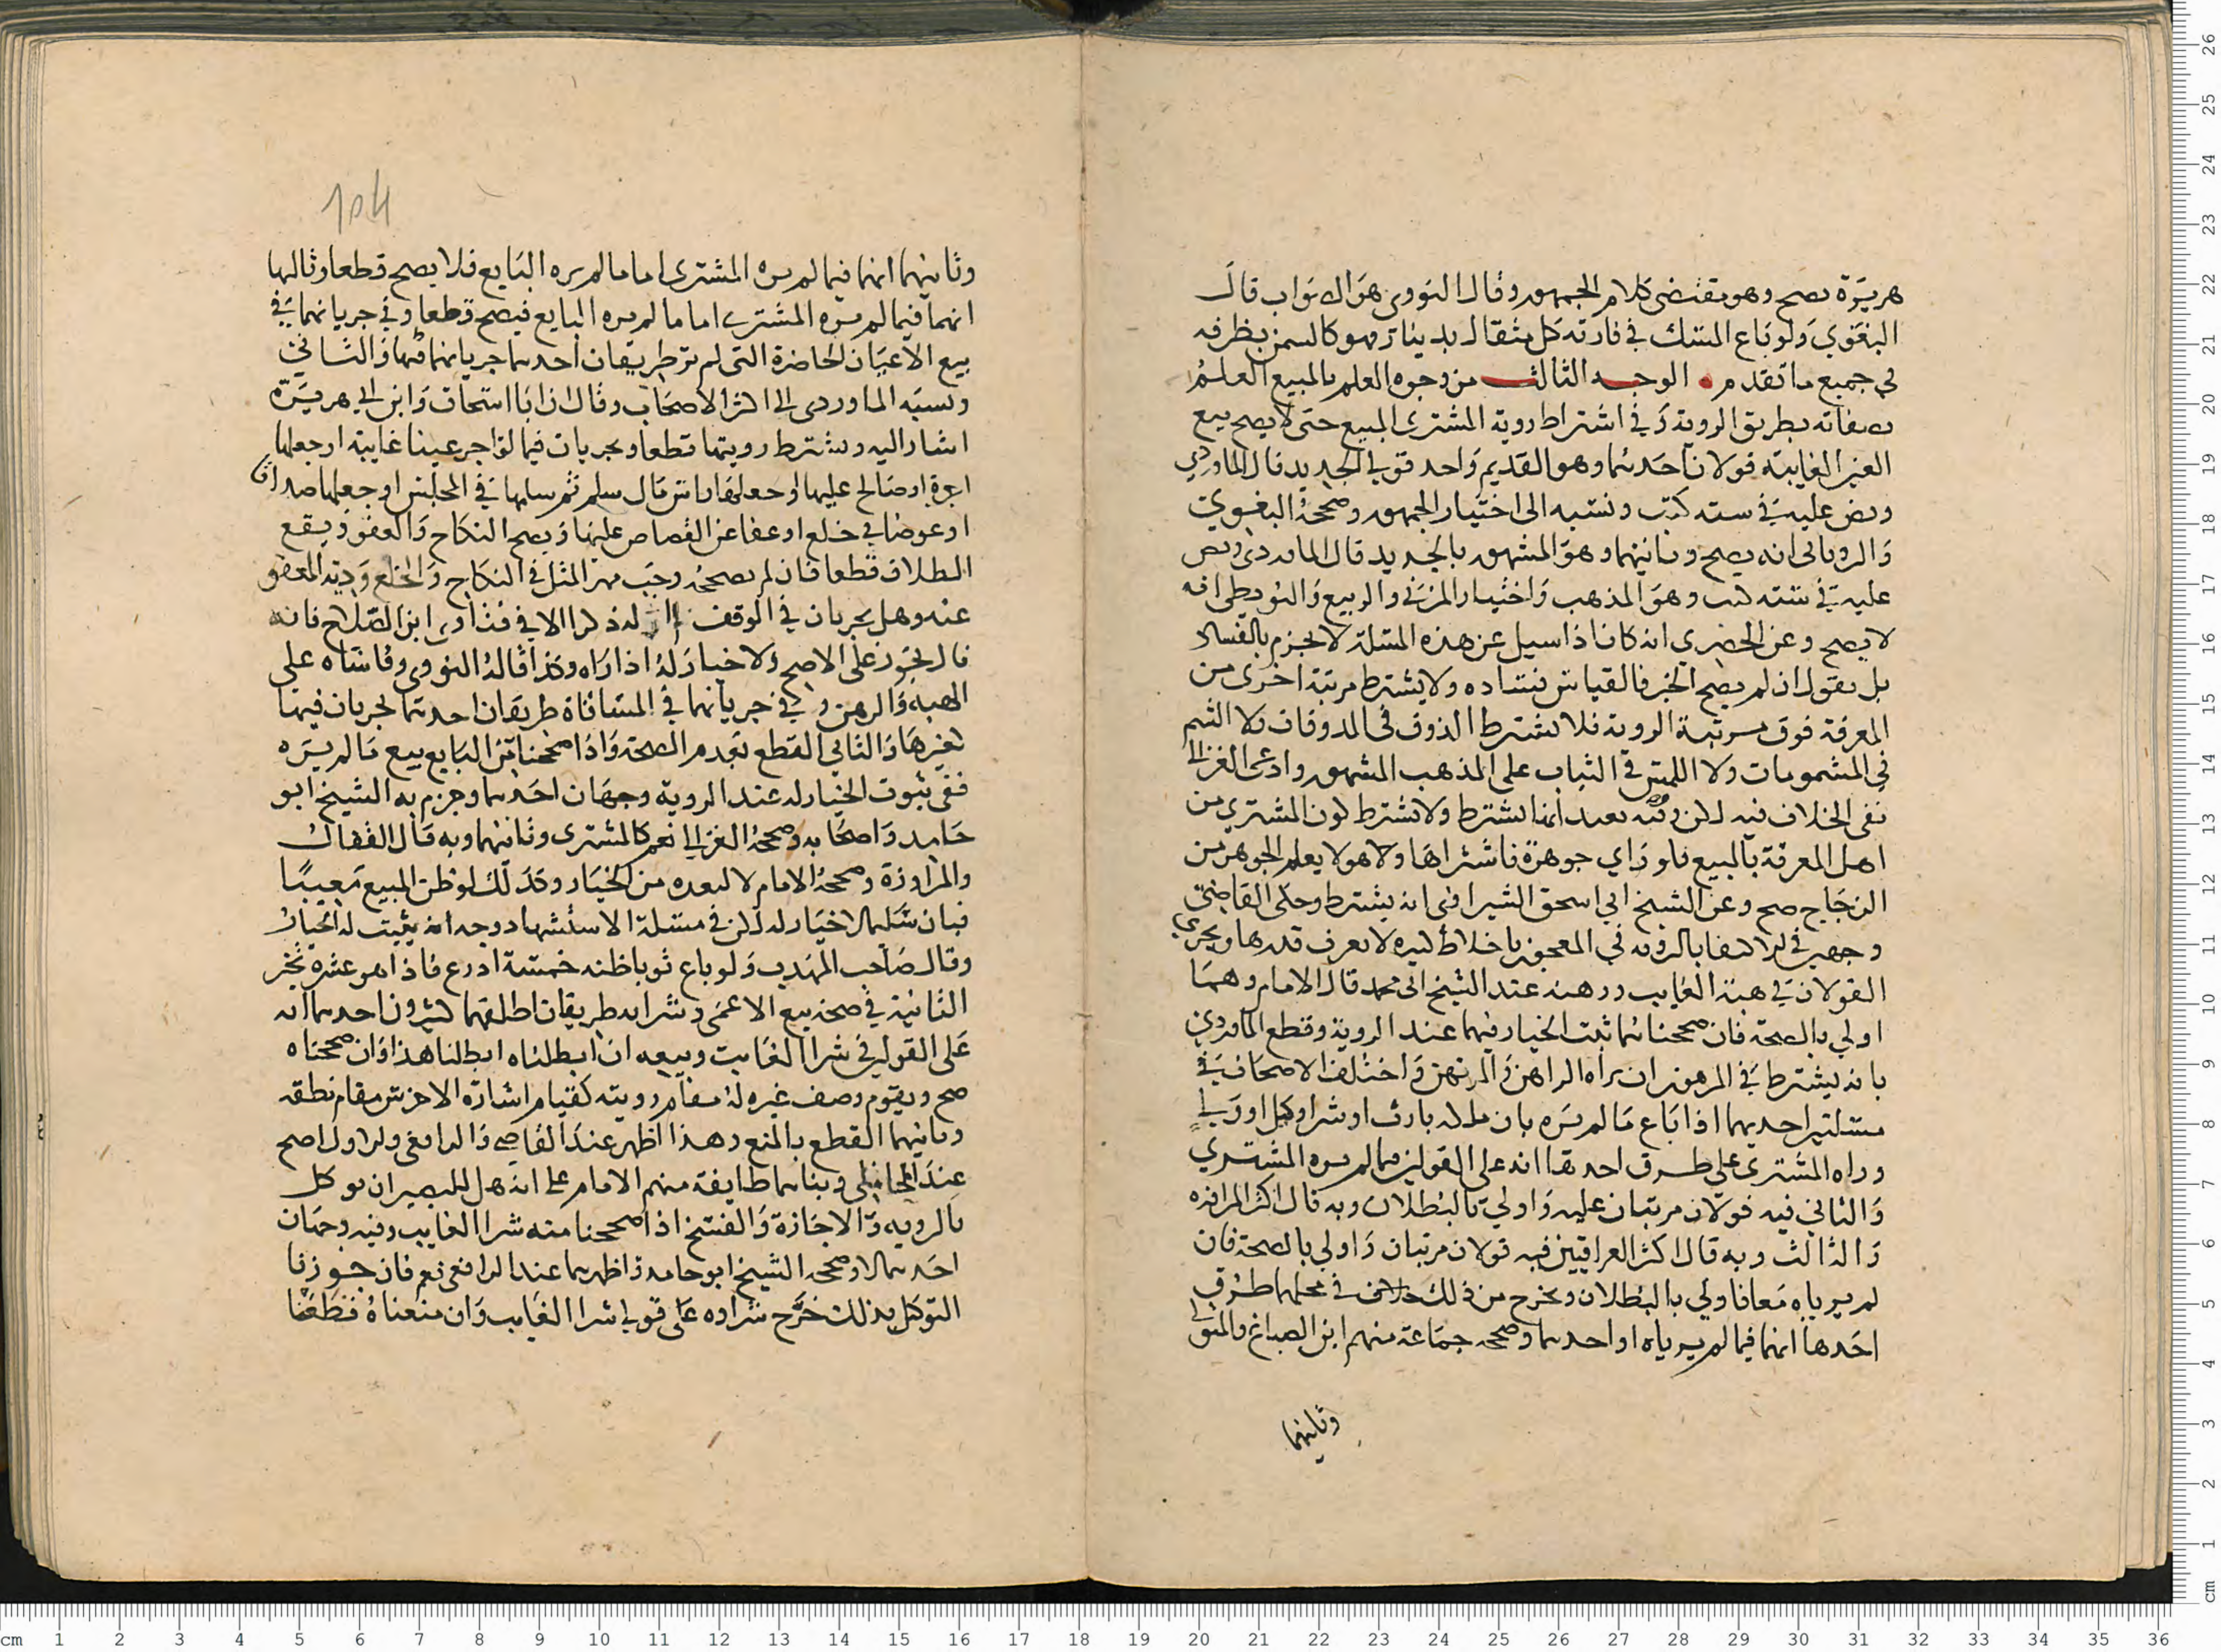 هريرة يصح وهو مقتضى كلام الجمهور وقال النووي هو الصواب قال
البغوي ولو باع المسك في فارته كل مثقال بدينار فهو كالسمن بظرفه
في جميع ما تقدم الوجه الثالث من وجوه العلم بالمبيع العلم
بصفاته بطريق الروية وفي اشتراط روية المشتري المبيع حتى لا يصح بيع
العين الغايبة قولان احدهما وهو القديم واحد قولي الجديد قال الماوردي
ونص عليه في سته كتب ونسبه الى اختيار الجمهور وصححه البغوي
والروياني انه يصح وثانيهما وهو المشهور بالجديد قال الماوردي ونص
عليه في سته كتب وهو المذهب واختيار المزني والربيع والبويطي انه
لا يصح وعن الخضري انه كان اذا سيل عن هذه المسلة لا يجزم بالفساد
بل يقول ان لم يصح الخبر فالقياس فساده ولا يشترط مرتبة اخرى من
المعرفة فوق مرتبة الروية فلا يشترط الذوق في المذوقات ولا الشم
في المشمومات ولا اللمس في الثياب على المذهب المشهور وادعى الغزالي
نفى الخلاف فيه لكن وجه بعيد انما يشترط ولا يشترط كون المشتري من
اهل المعرفة بالمبيع فلو راي جوهرة فاشتراها وهو لا يعلم الجوهر من
الزجاج صح وعن الشيخ ابي اسحق الشيرازي انه يشترط وحكى القاضي
وجهين في الاكتفا بالروية في المعجون باخلاط كثيره لا يعرف قدرها ويجري
القولان في هبة الغايب ورهنه عند الشيخ ابي محمد قال الامام وهما
اولي بالصحة فان صححناهما ثبت الخيار فيهما عند الروية وقطع الماوردي
بانه يشترط في المرهون ان يراه الراهن والمرتهن واختلف الاصحاب في
مسلتين احديهما اذا باع ما لم يره بان ملكه بارث او شرا وكيل او ولي
وراه المشتري على طرق احدها انه على القولين فيما لم يره المشتري
والثاني فيه قولان مرتبان عليه واولي بالبطلان وبه قال اكثر المراوزه
والثالث وبه قال اكثر العراقيين فيه قولان مرتبان واولي بالصحة فان
لم يرياه معا فاولي بالبطلان ويخرج من ذلك خلاف في محلهما طرق
احدها انهما فيما لم يرياه او احدهما وصححه جماعة منهم ابن الصباغ والمتولي
وثانيهما
104
وثانيهما انهما فيما لم يره المشتري اما ما لم يره البايع فلا يصح قطعا وثالثها
انهما فيما لم يره المشتري اما ما لم يره البايع فيصح قطعا وفي جريانهما في
بيع الاعيان الحاضرة التي لم تر طريقان احدهما جريانهما فيها والثاني
ونسبه الماوردي الى اكثر الاصحاب وقال ان ابا اسحاق وابن ابي هريرة
اشارا اليه ويشترط رويتها قطعا ويجريان فيما لو اجر عينا غايبة او جعلها
اجرة او صالح عليها او جعلها راس مال سلم ثم سلمها في المجلس او جعلها صداقا
او عوضا في خلع او عفا عن القصاص عليها ويصح النكاح والعفو ويقع
الطلاق قطعا فان لم يصححه وجب مهر المثل في النكاح والخلع ودية المعفو
عنه وهل يجريان في الوقف له ذكرا الا في فتاوي ابن الصلاح فانه
قال يجوز على الاصح ولا خيار له اذا راه وكذا قاله النووي وقاساه على
الهبة والرهن وفي جريانهما في المساقاة طريقان احدهما يجريان فيها
كغيرها والثاني القطع بعدم الصحة واذا صححنا من البايع بيع ما لم يره
ففي ثبوت الخيار له عند الروية وجهان احدهما وجزم به الشيخ ابو
حامد واصحابه وصححه الغزالي نعم كالمشتري وثانيهما وبه قال القفال
والمراوزة وصححه الامام لا لبعده من الخيار وكذلك لو ظن المبيع معيبا
فبان سليما لا خيار له لكن في مسلة الاستشهاد وجه انه يثبت له الخيار
وقال صاحب المهذب ولو باع ثوبا ظنه خمسة اذرع فاذا هو عشره تخير
الثانية في صحة بيع الاعمى وشرايه طريقان اطلقهما كثيرون احدهما انه
على القولين في شرا الغايب وبيعه ان ابطلناه ابطلنا هذا وان صححناه
صح ويقوم وصف غيره له مقام رويته كقيام اشارة الاخرس مقام نطقه
وثانيهما القطع بالمنع وهذا اظهر عند القاضي والرافعي والاول اصح
عند المحاملي وبناهما طايفة منهم الامام على انه هل للبصير ان يوكل
بالرويه والاجازة والفسخ اذا صححنا منه شرا الغايب وفيه وجهان
احدهما لا وصححه الشيخ ابو حامد واظهرهما عند الرافعي نعم فان جوزنا
التوكيل بذلك خرج شراوه على قولي شرا الغايب وان منعناه قطعنا